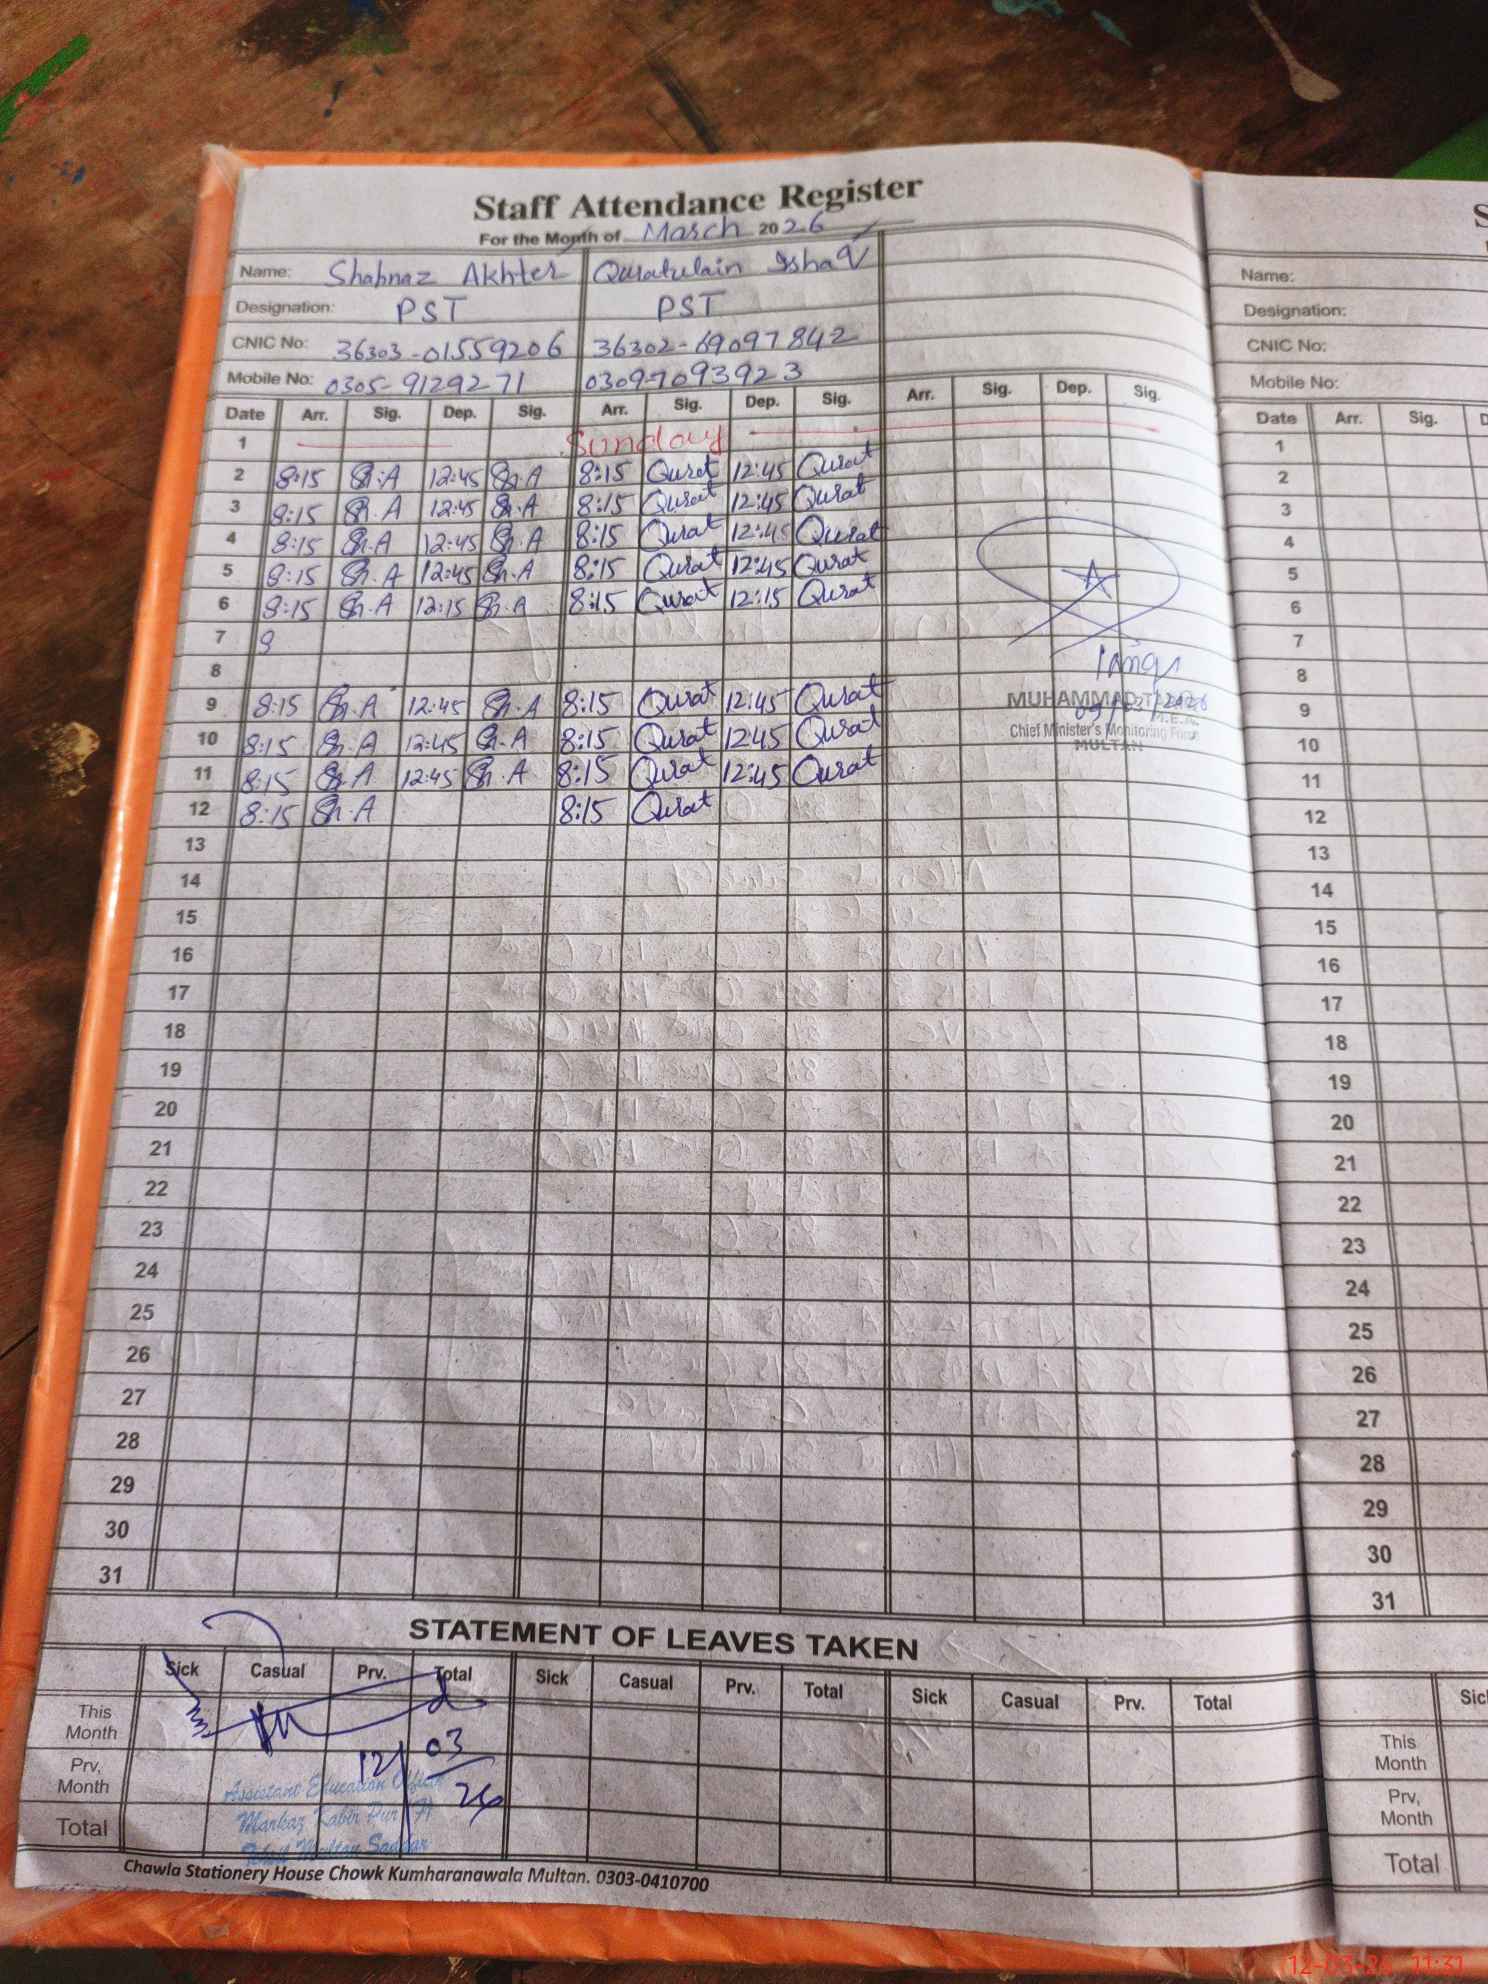 Staff Attendance Register
For the Month of March 2026
Name: Shahnaz Akhter Quratulain Ishaq
Designation: PST PST
CNIC No: 36303-01559206 36302-69097842
Mobile No: 0305-9129271 03097093923
Date Arr. Sig. Dep. Sig. Arr. Sig. Dep. Sig. Arr. Sig. Dep. Sig.
1 Sunday
2 8:15 Sh.A 12:45 Sh.A 8:15 Qurat 12:45 Qurat
3 8:15 Sh.A 12:45 Sh.A 8:15 Qurat 12:45 Qurat
4 8:15 Sh.A 12:45 Sh.A 8:15 Qurat 12:45 Qurat
5 8:15 Sh.A 12:45 Sh.A 8:15 Qurat 12:45 Qurat
6 8:15 Sh.A 12:15 Sh.A 8:15 Qurat 12:15 Qurat
7 9
8
MUHAMMAD
9 8:15 Sh.A 12:45 Sh.A 8:15 Qurat 12:45 Qurat
M.E.A.
Chief Minister's Monitoring Force
10 8:15 Sh.A 12:45 Sh.A 8:15 Qurat 1245 Qurat
MULTAN
11 8:15 Sh.A 12:45 Sh.A 8:15 Qurat 12:45 Qurat
12 8:15 Sh.A 8:15 Qurat
13
14
15
16
17
18
19
20
21
22
23
24
25
26
27
28
29
30
31
STATEMENT OF LEAVES TAKEN
Sick Casual Prv. Total Sick Casual Prv. Total Sick Casual Prv. Total
This Month
Prv, Month
Total
12/03/26
Assistant Education Officer
Markaz Kabir Pur (F)
Tehsil Multan Saddar
Chawla Stationery House Chowk Kumharanawala Multan. 0303-0410700
S
Name:
Designation:
CNIC No:
Mobile No:
Date Arr. Sig. D
1
2
3
4
5
6
7
8
9
10
11
12
13
14
15
16
17
18
19
20
21
22
23
24
25
26
27
28
29
30
31
Sic
This Month
Prv, Month
Total
12-03-26 11:31